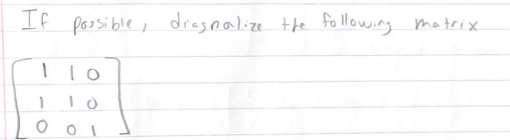 If possible, diagnalize the following matrix
1 1 0
1 1 0
0 0 1